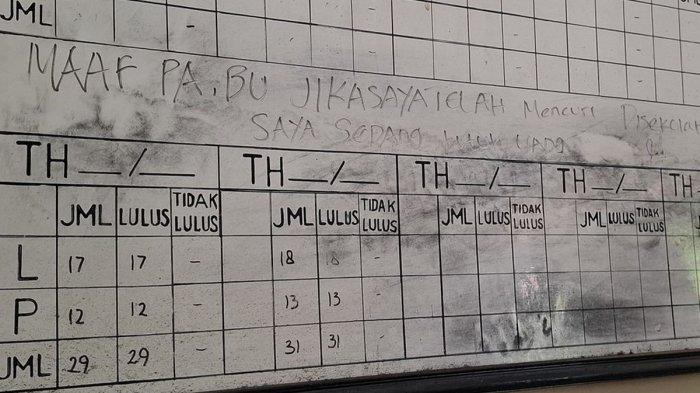 JML - - - -
MAAF PA, BU JIKA SAYA TELAH Mencuri Disekolah
SAYA SEDANG butuh UANG
TH__/__ TH__/__ TH__/__ TH__/__ TH
JML LULUS TIDAK LULUS JML LULUS TIDAK LULUS JML LULUS TIDAK LULUS JML LULUS TIDAK LULUS
L 17 17 - 18 18 -
P 12 12 - 13 13 -
JML 29 29 - 31 31 -